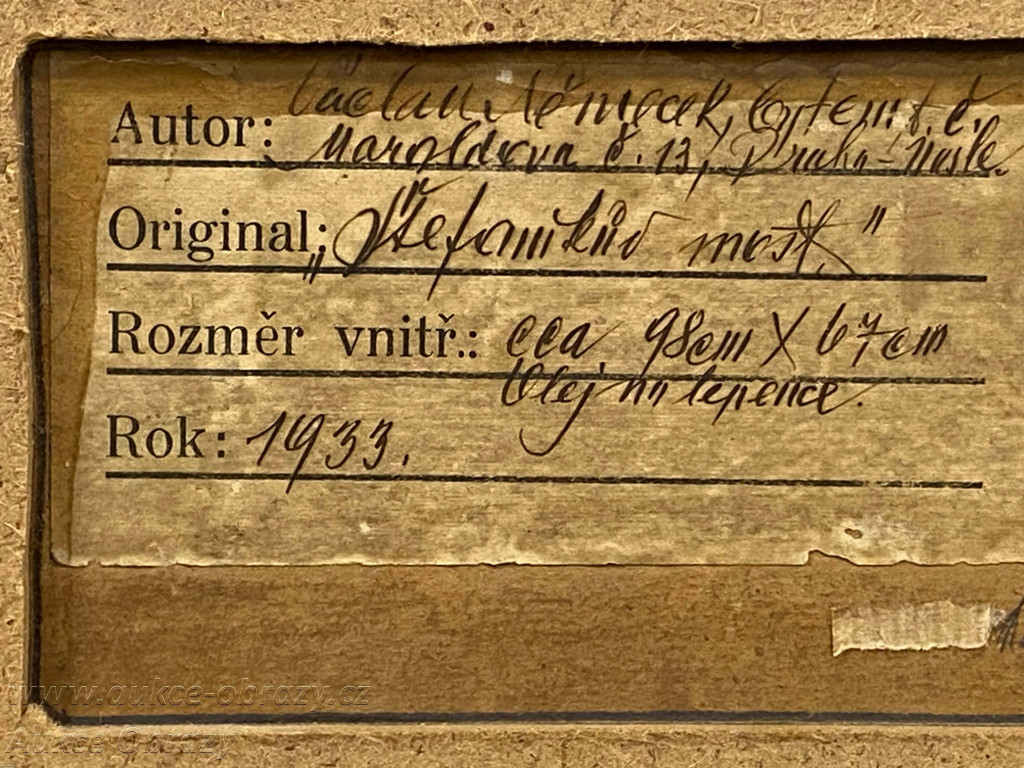 Autor: Václav Němeček,
Maroldova č. 13, Praha-Nusle.
Original: „Štefanikův most."
Rozměr vnitř.: cca 98cm X 67cm
Olej na lepence.
Rok: 1933.
www.aukce-obrazy.cz
Aukce Obrazy